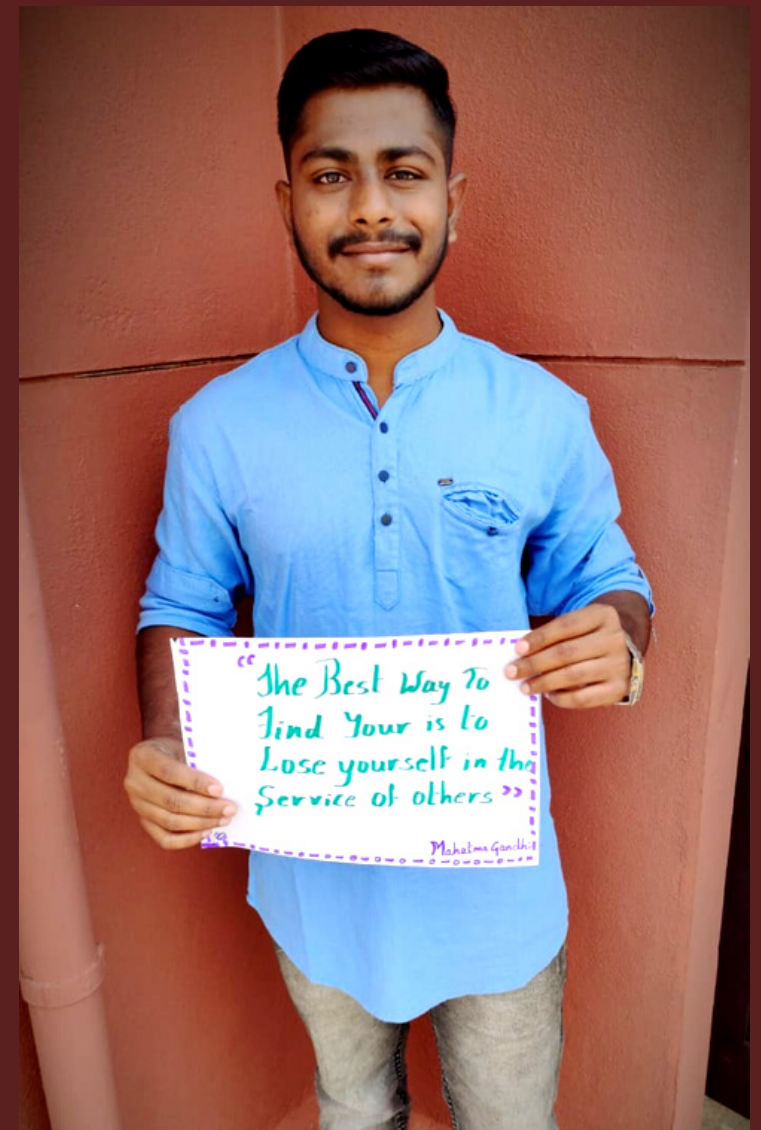 “The Best Way To
Find Your is to
Lose yourself in the
Service of others”
Mahatma Gandhi